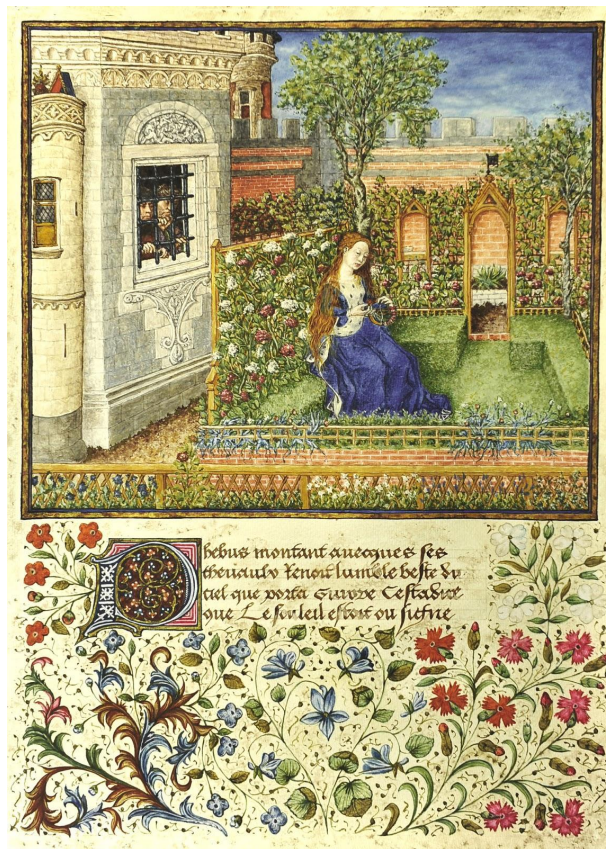 Phebus montant auecques ses
cheuaulx tenoit lumble beste du
ciel que porta Cestadire
que Le souleil estoit ou signe